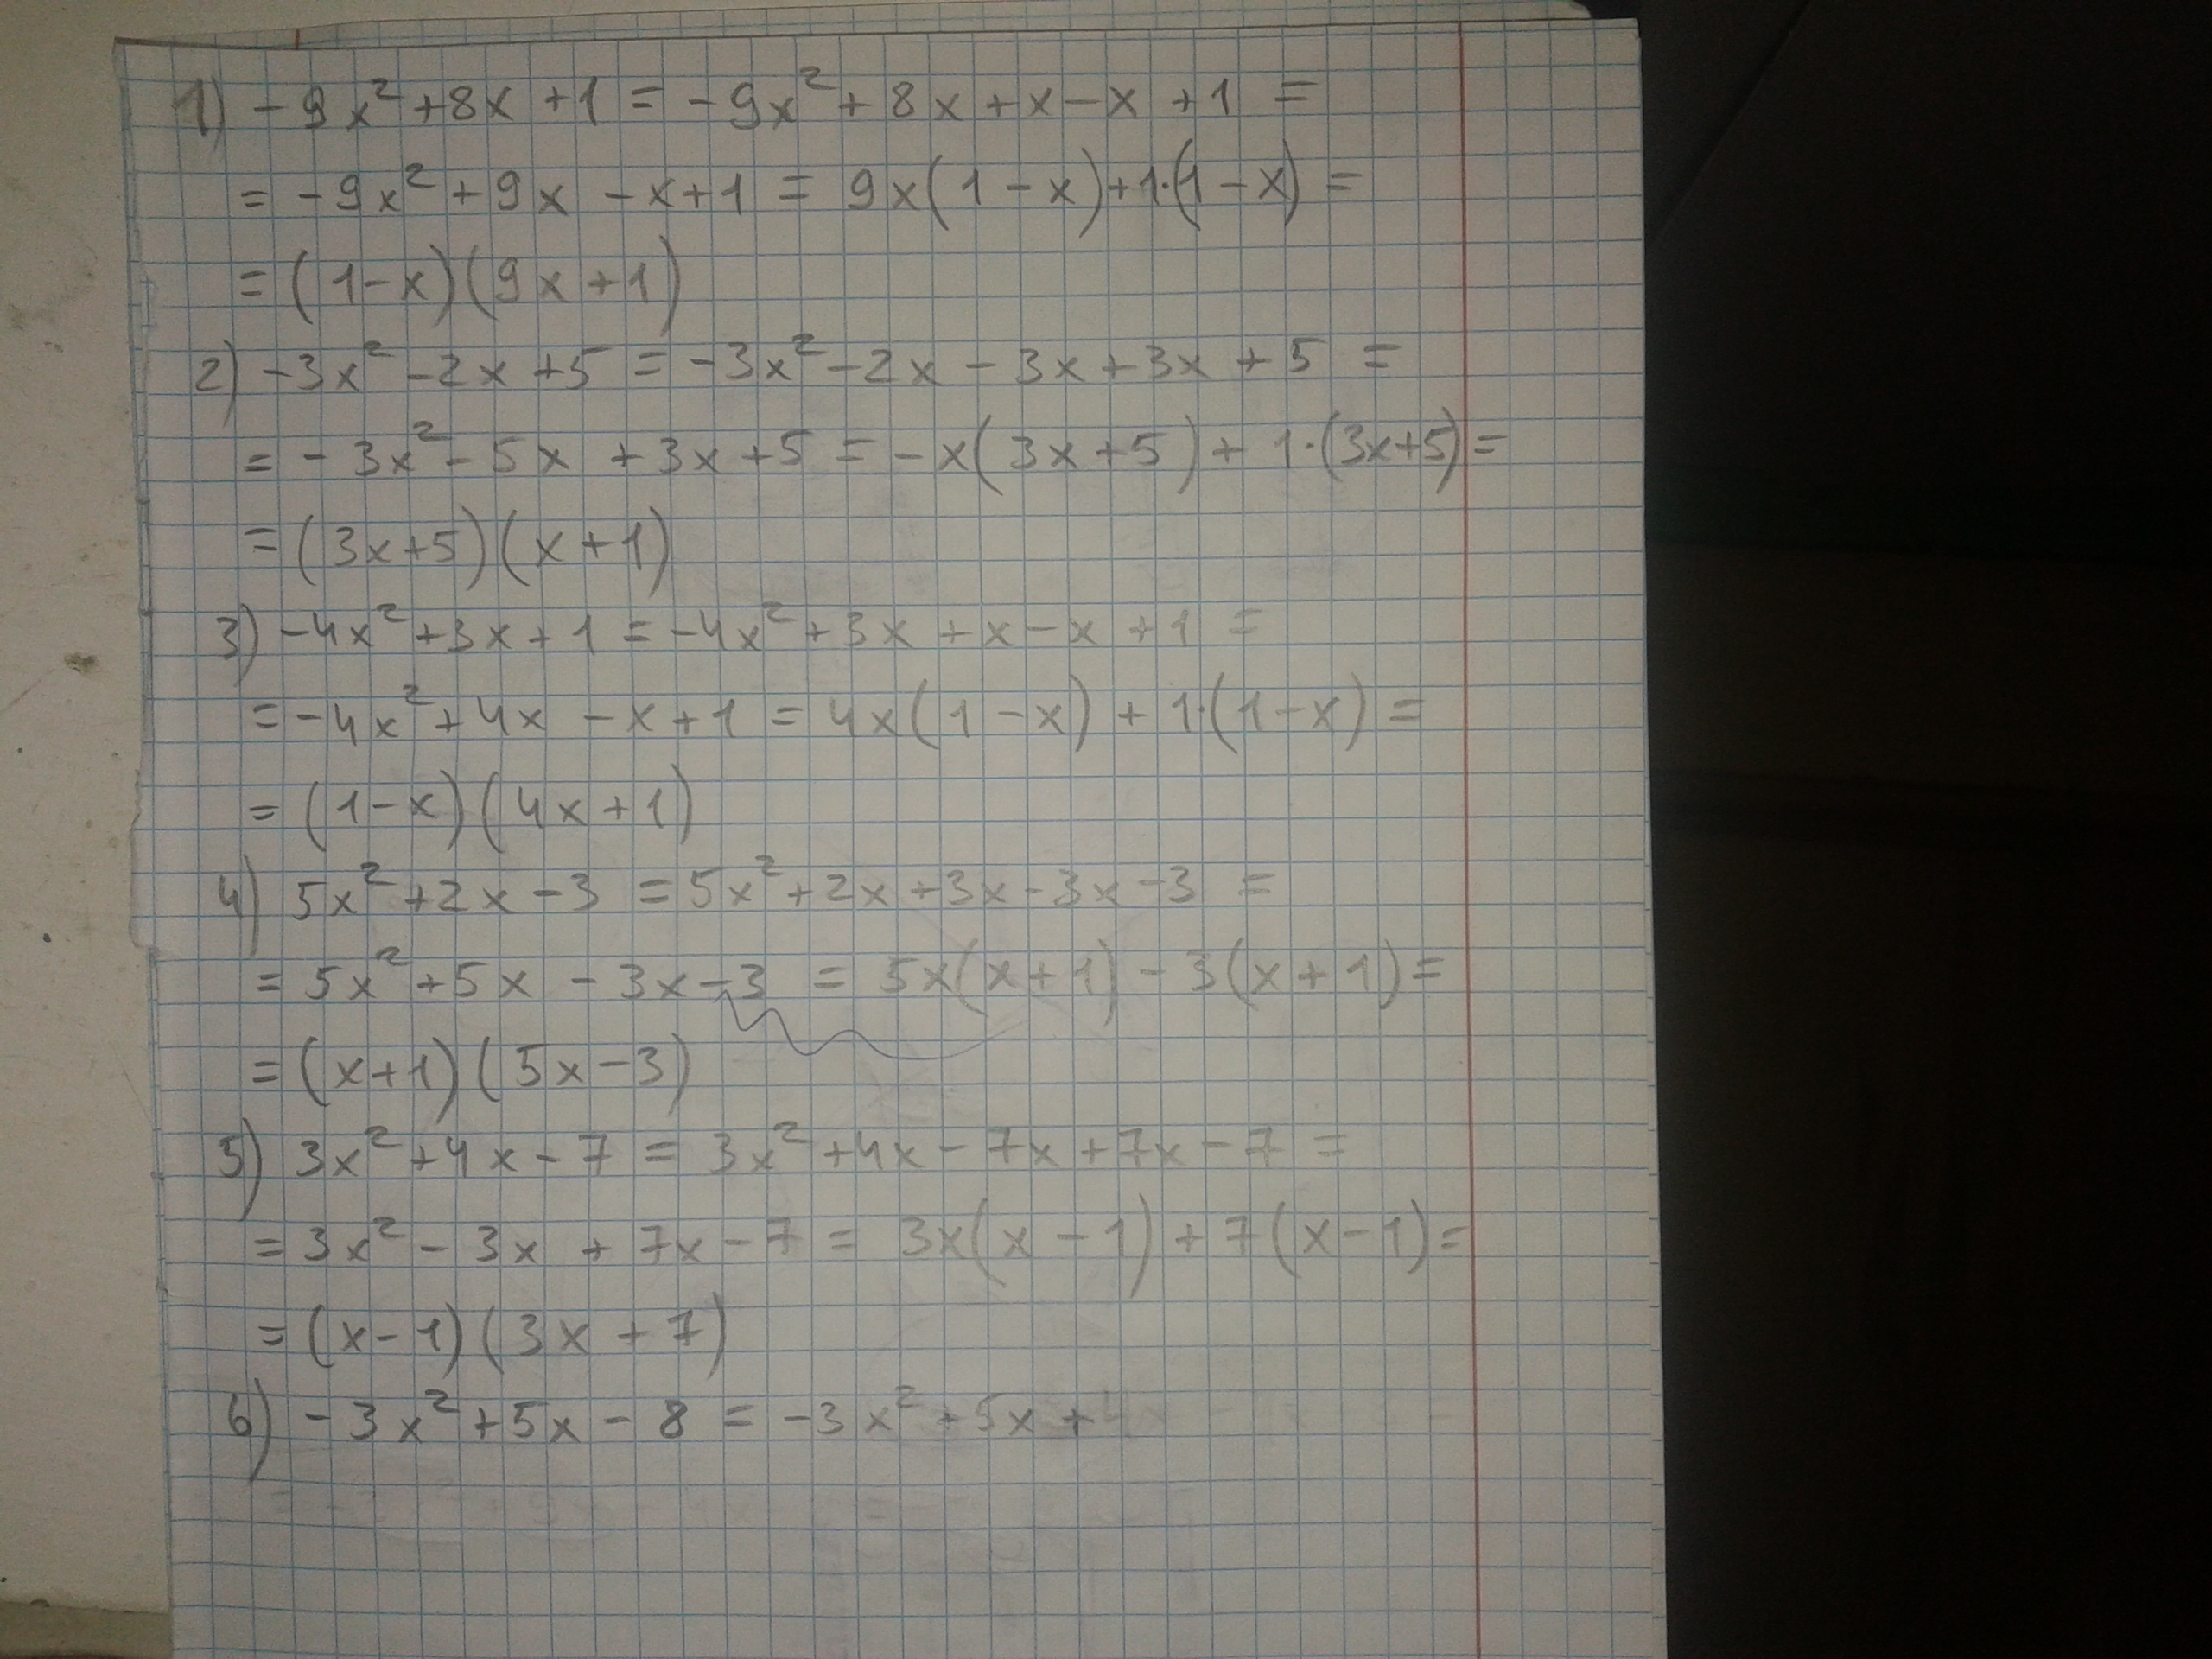 1) -9x² + 8x + 1 = -9x² + 8x + x - x + 1 =
= -9x² + 9x - x + 1 = 9x(1 - x) + 1·(1 - x) =
= (1 - x)(9x + 1)
2) -3x² - 2x + 5 = -3x² - 2x - 3x + 3x + 5 =
= -3x² - 5x + 3x + 5 = -x(3x + 5) + 1·(3x + 5) =
= (3x + 5)(x + 1)
3) -4x² + 3x + 1 = -4x² + 3x + x - x + 1 =
= -4x² + 4x - x + 1 = 4x(1 - x) + 1·(1 - x) =
= (1 - x)(4x + 1)
4) 5x² + 2x - 3 = 5x² + 2x + 3x - 3x - 3 =
= 5x² + 5x - 3x - 3 = 5x(x + 1) - 3(x + 1) =
= (x + 1)(5x - 3)
5) 3x² + 4x - 7 = 3x² + 4x - 7x + 7x - 7 =
= 3x² - 3x + 7x - 7 = 3x(x - 1) + 7(x - 1) =
= (x - 1)(3x + 7)
6) -3x² + 5x - 8 = -3x² + 5x +